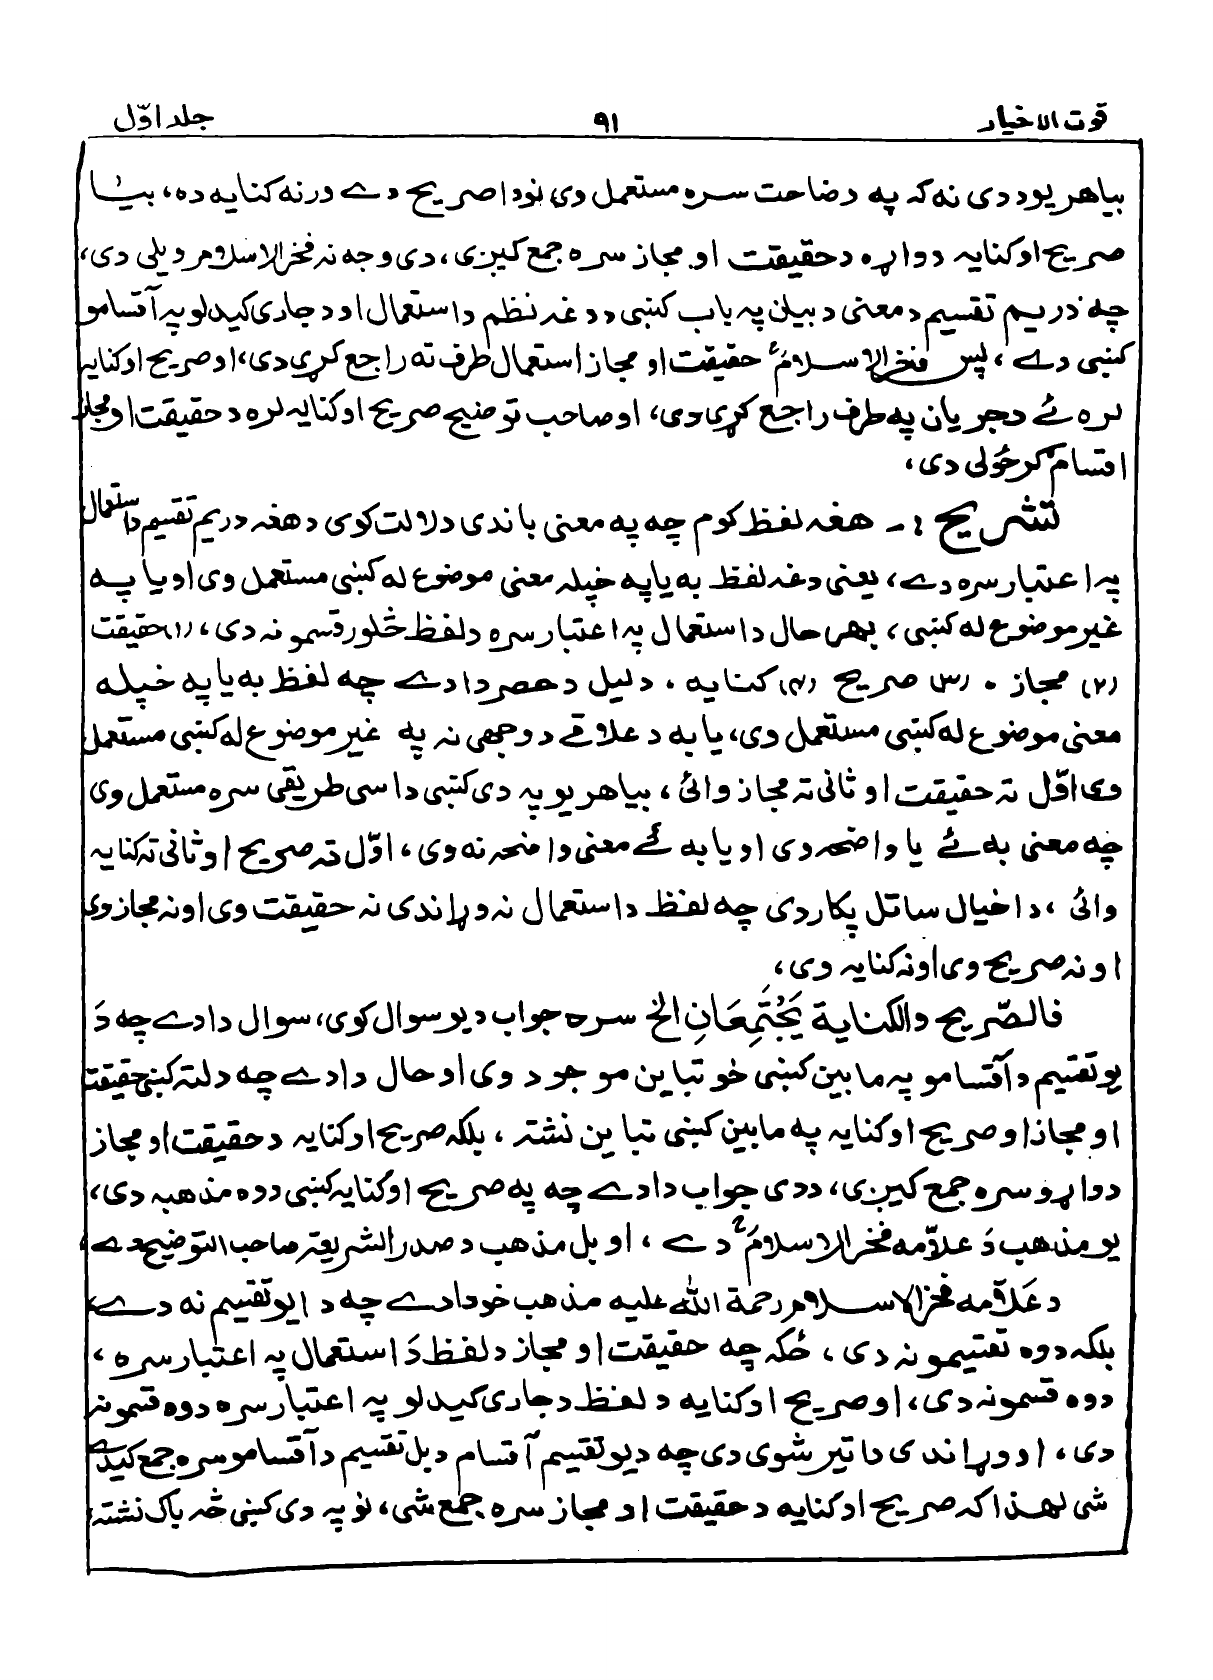 قوت الاخیار ۹۱ جلد اوّل
بیا هر یو ددی نه که په وضاحت سره مستعمل وی نو دا صریح دے ورنه کنایه ده، بیا
صریح او کنایه دواړه د حقیقت او مجاز سره جمع کیږی، د دی وجه نه فخر الاسلام ویلی دی،
چه دریم تقسیم د معنی د بیان په باب کښی د دغه نظم د استعمال او د جاری کیدلو په آقسامو
کښی دے، پس فخر الاسلامؒ حقیقت او مجاز استعمال طرف ته راجع کړی دی، او صریح او کنایه
لره ئے د جریان په طرف راجع کړی دی، او صاحب توضیح صریح او کنایه لره د حقیقت او مجاز
اقسام ګرځولی دی،
تشریح :- هغه لفظ کوم چه په معنی باندی دلالت کوی د هغه دریم تقسیم د استعمال
په اعتبار سره دے، یعنی دغه لفظ به یا په خپله معنی موضوع له کښی مستعمل وی او یا په
غیر موضوع له کښی، بهر حال د استعمال په اعتبار سره د لفظ څلور قسمونه دی، (۱) حقیقت
(۲) مجاز ۰ (۳) صریح (۴) کنایه ۰ دلیل د حصر دا دے چه لفظ به یا په خپله
معنی موضوع له کښی مستعمل وی، یا به د علاقے د وجهی نه په غیر موضوع له کښی مستعمل
وی اوّل ته حقیقت او ثانی ته مجاز وائی، بیا هر یو په دی کښی داسی طریقی سره مستعمل وی
چه معنی به ئے یا واضحه وی او یا به ئے معنی واضحه نه وی، اوّل ته صریح او ثانی ته کنایه
وائی، دا خیال ساتل پکار دی چه لفظ د استعمال نه وړاندی نه حقیقت وی او نه مجاز وی
او نه صریح وی او نه کنایه وی،
فالصّریح والکنایة یَجْتَمِعَانِ الخ سره جواب د یو سوال کوی، سوال دا دے چه دَ
یو تقسیم د آقسامو په مابین کښی خو تباین موجود وی او حال دا دے چه دلته کښی حقیقت
او مجاز او صریح او کنایه په مابین کښی تباین نشته، بلکه صریح او کنایه د حقیقت او مجاز
دواړو سره جمع کیږی، ددی جواب دا دے چه په صریح او کنایه کښی دوه مذهبه دی،
یو مذهب دَ علاّمه فخر الاسلامؒ دے، او بل مذهب د صدر الشریعة صاحب التوضیح دے،
د عَلاّمه فخر الاسلام رحمة الله علیه مذهب خو دا دے چه دا یو تقسیم نه دے،
بلکه دوه تقسیمونه دی، ځکه چه حقیقت او مجاز د لفظ دَ استعمال په اعتبار سره،
دوه قسمونه دی، او صریح او کنایه د لفظ د جاری کیدلو په اعتبار سره دوه قسمونه
دی، او وړاندی دا تیر شوی دی چه د یو تقسیم آقسام د بل تقسیم د آقسامو سره جمع کیدے
شی لهذا که صریح او کنایه د حقیقت او مجاز سره جمع شی، نو په دی کښی څه باک نشته،